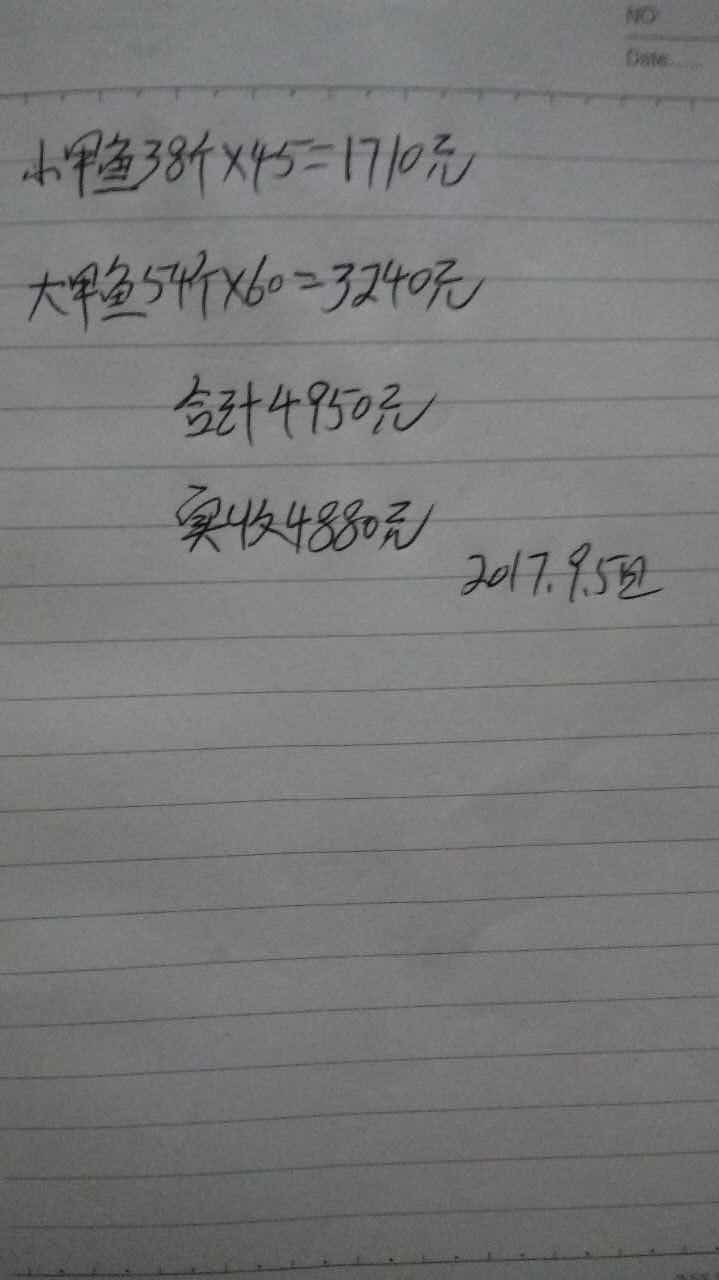 NO
Date......
小甲鱼38个×45=1710元
大甲鱼54个×60=3240元
合计4950元
实收4880元
2017.9.5日